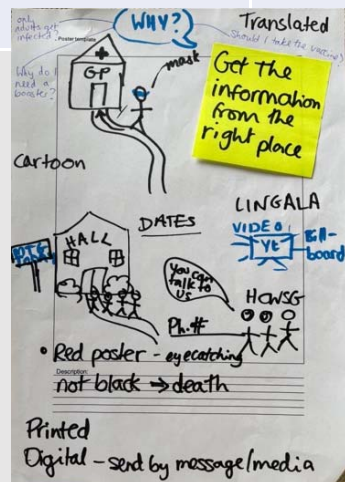 only
adults get
infected
Poster template
WHY?
Translated
Should I take the vaccine?
Why do I
need a
booster?
GP
mask
Get the
information
from the
right place
Cartoon
LINGALA
DATES
VIDEO
Yt
Bill-
board
HALL
You can
talk to
us
HCWSG
Ph.#
• Red poster - eyecatching
Description:
not black → death
Printed
Digital - send by message/media